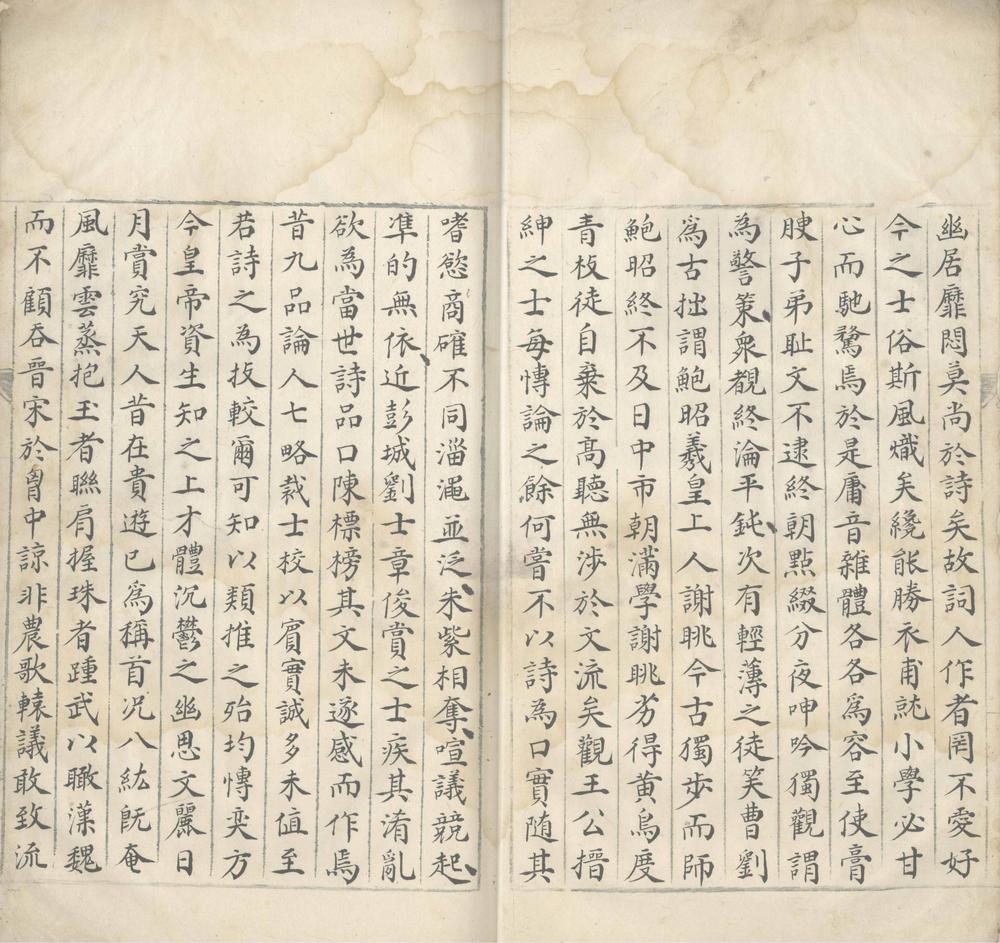 幽居靡悶莫尚於詩矣故詞人作者罔不愛好
今之士俗斯風熾矣纔能勝衣甫就小學必甘
心而馳騖焉於是庸音雜體各各爲容至使膏
腴子弟耻文不逮終朝點綴分夜呻吟獨觀謂
為警策衆覩終淪平鈍次有輕薄之徒笑曹劉
爲古拙謂鮑昭羲皇上人謝眺今古獨步而師
鮑昭終不及日中市朝滿學謝眺劣得黄鳥度
青枝徒自棄於高聽無涉於文流矣觀王公搢
紳之士每愽論之餘何嘗不以詩為口實随其
嗜慾商確不同淄澠並泛朱紫相奪喧議競起
凖的無依近彭城劉士章俊賞之士疾其淆亂
欲為當世詩品口陳標榜其文未遂感而作焉
昔九品論人七略裁士校以賓實誠多未值至
若詩之為技較爾可知以類推之殆均愽奕方
今皇帝資生知之上才體沉鬱之幽思文麗日
月賞究天人昔在貴遊已爲稱首况八紘既奄
風靡雲蒸抱玉者聯肩握珠者踵武以瞰漢魏
而不顧吞晉宋於胷中諒非農歌轅議敢致流